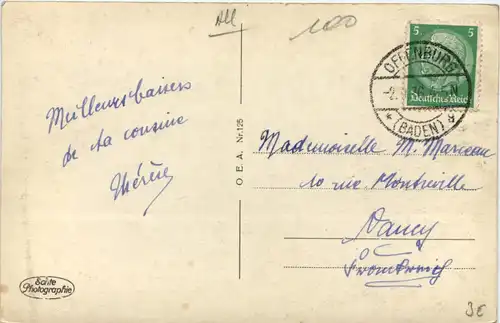 All
100
Meilleurs baisers
de ta cousine
Thérèse
O. E. A. Nr. 125
5 5
Deutsches Reich
OFFENBURG
(BADEN)
Mademoiselle M.
10 rue Montreville
Nancy
Frankreich
Echte
Photographie
3€